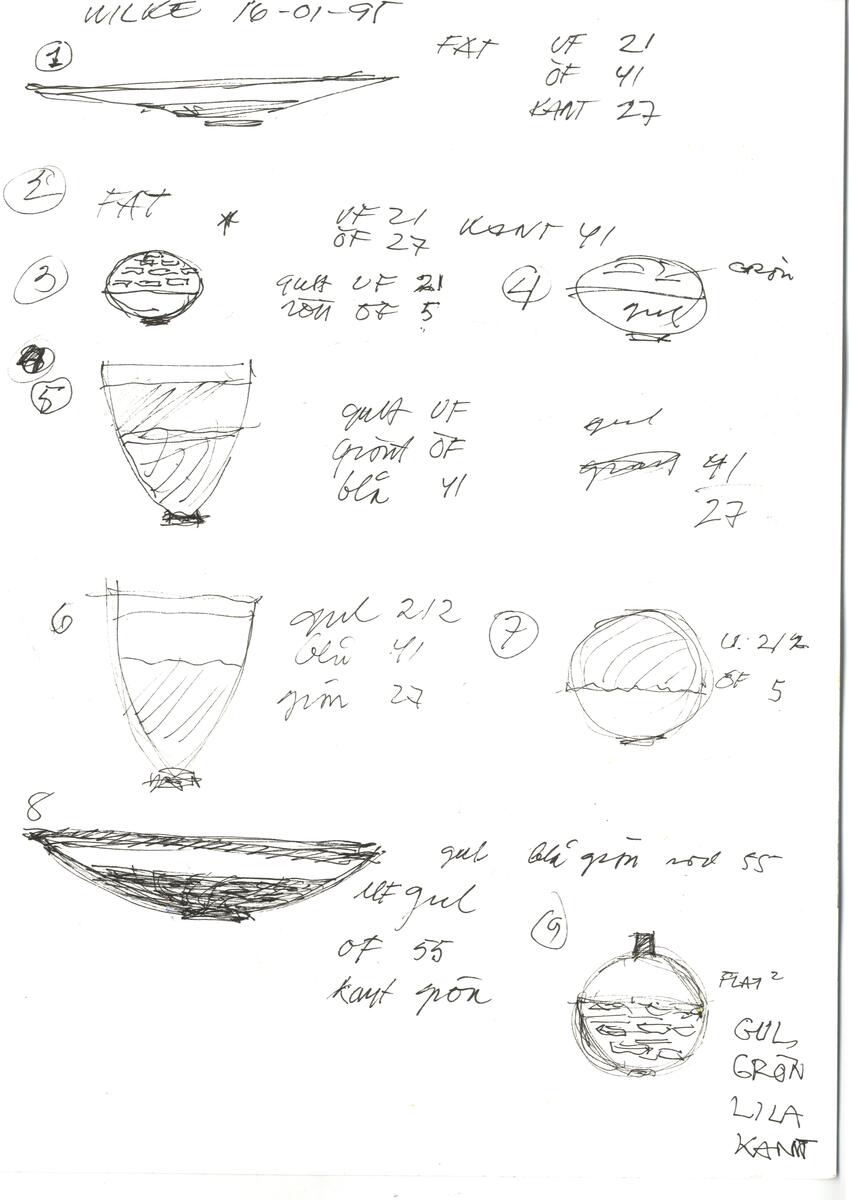 WILKE 16-01-95
1
FAT UF 21
ÖF 41
KANT 27
2
FAT *
UF 21
ÖF 27
KANT 41
3
gult UF 21
rött ÖF 5
4
GRÖN
gul
5
gult UF
grönt ÖF
blå 41
gul
41
27
6
gul 212
blå 41
grön 27
7
U: 212
ÖF 5
8
gul blå grön röd 55
UF gul
ÖF 55
kant grön
9
FLAT 2
GUL
GRÖN
LILA
KANT